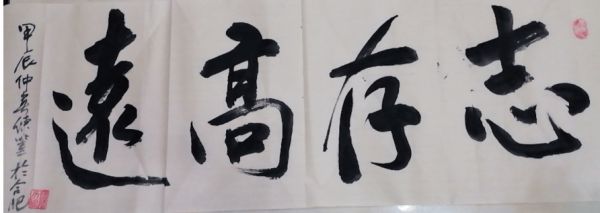 志存高遠
甲辰仲春 於合肥